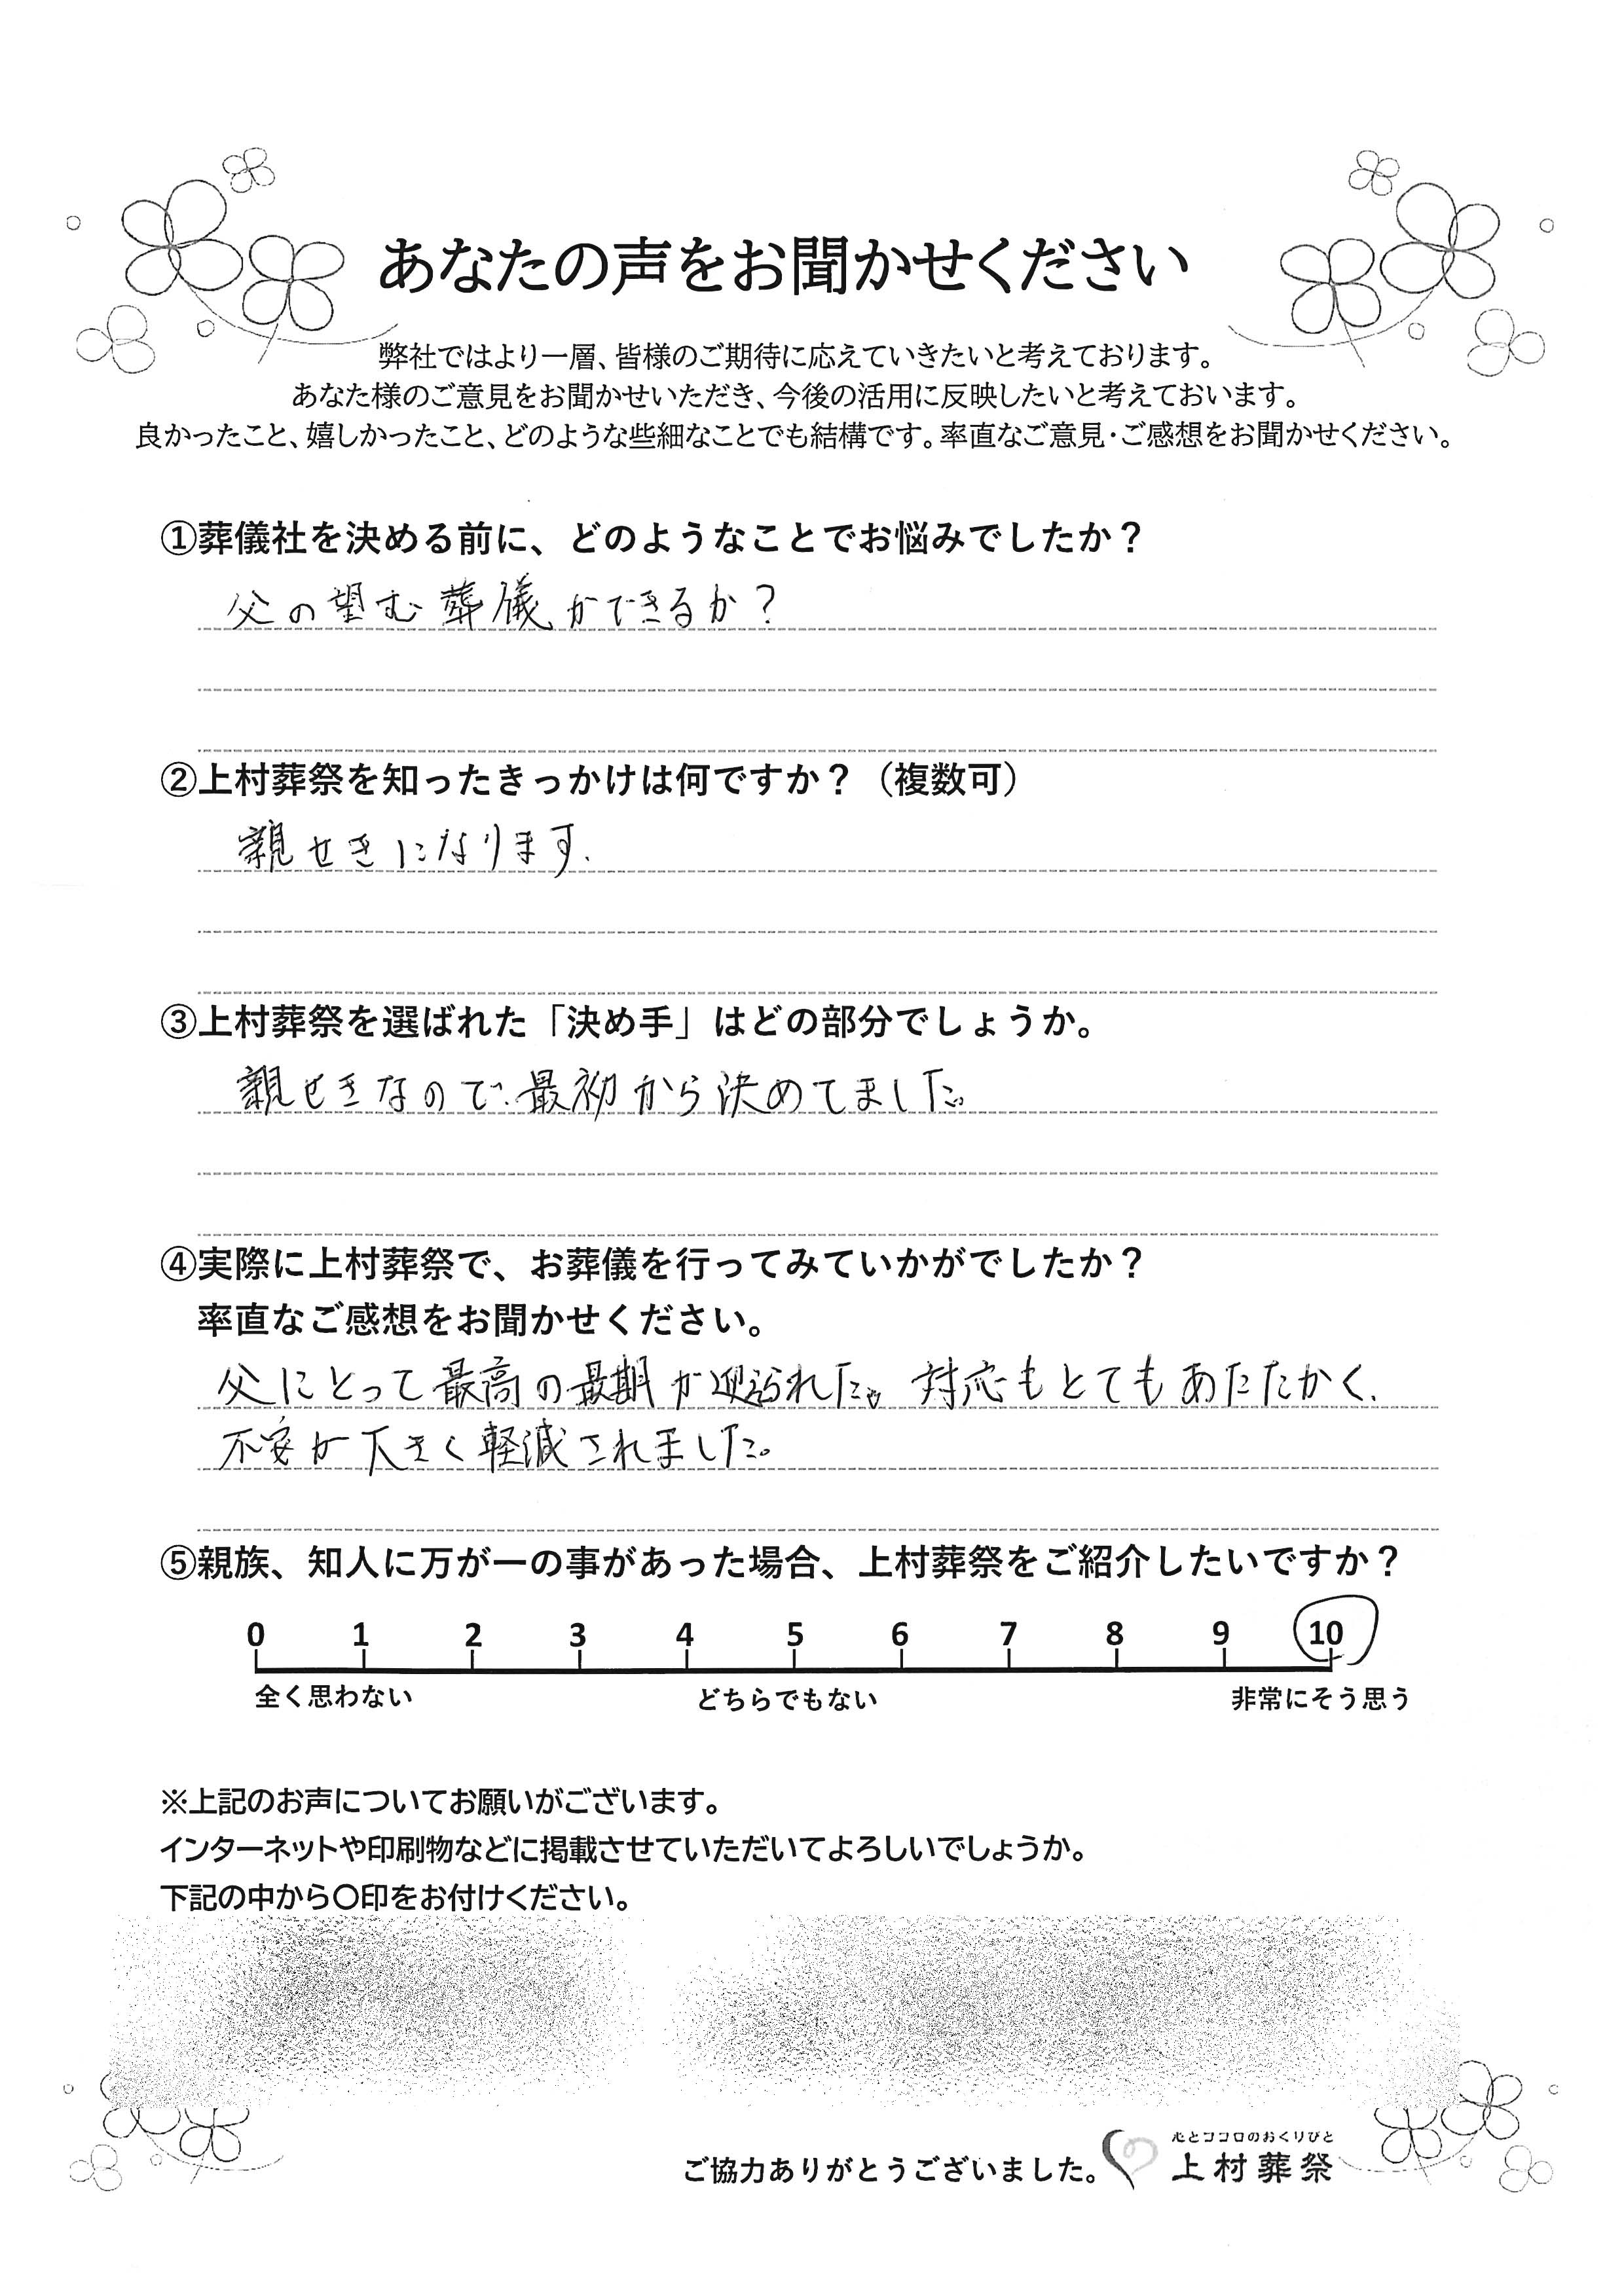 あなたの声をお聞かせください
弊社ではより一層、皆様のご期待に応えていきたいと考えております。
あなた様のご意見をお聞かせいただき、今後の活用に反映したいと考えておいます。
良かったこと、嬉しかったこと、どのような些細なことでも結構です。率直なご意見・ご感想をお聞かせください。
①葬儀社を決める前に、どのようなことでお悩みでしたか？
父の望む葬儀ができるか？
②上村葬祭を知ったきっかけは何ですか？（複数可）
親せきになります.
③上村葬祭を選ばれた「決め手」はどの部分でしょうか。
親せきなので、最初から決めてました。
④実際に上村葬祭で、お葬儀を行ってみていかがでしたか？
率直なご感想をお聞かせください。
父にとって最高の最期が迎えられた。対応もとてもあたたかく、
不安が大きく軽減されました。
⑤親族、知人に万が一の事があった場合、上村葬祭をご紹介したいですか？
0 1 2 3 4 5 6 7 8 9 10
全く思わない どちらでもない 非常にそう思う
※上記のお声についてお願いがございます。
インターネットや印刷物などに掲載させていただいてよろしいでしょうか。
下記の中から〇印をお付けください。
心とココロのおくりびと
ご協力ありがとうございました。 上村葬祭